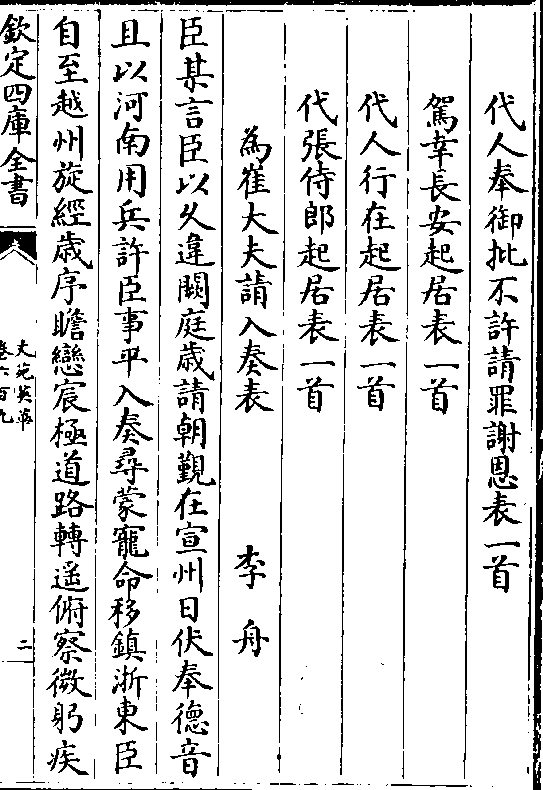 代人奉御批不許請罪謝恩表一首
駕幸長安起居表一首
代人行在起居表一首
代張侍郎起居表一首
為崔大夫請入奏表 李舟
臣某言臣以久違闕庭歲請朝覲在宣州日伏奉德音
且以河南用兵許臣事平入奏尋蒙寵命移鎮浙東臣
自至越州旋經歲序瞻戀宸極道路轉遙俯察微躬疾
欽定四庫全書
文苑英華
卷六百九
二